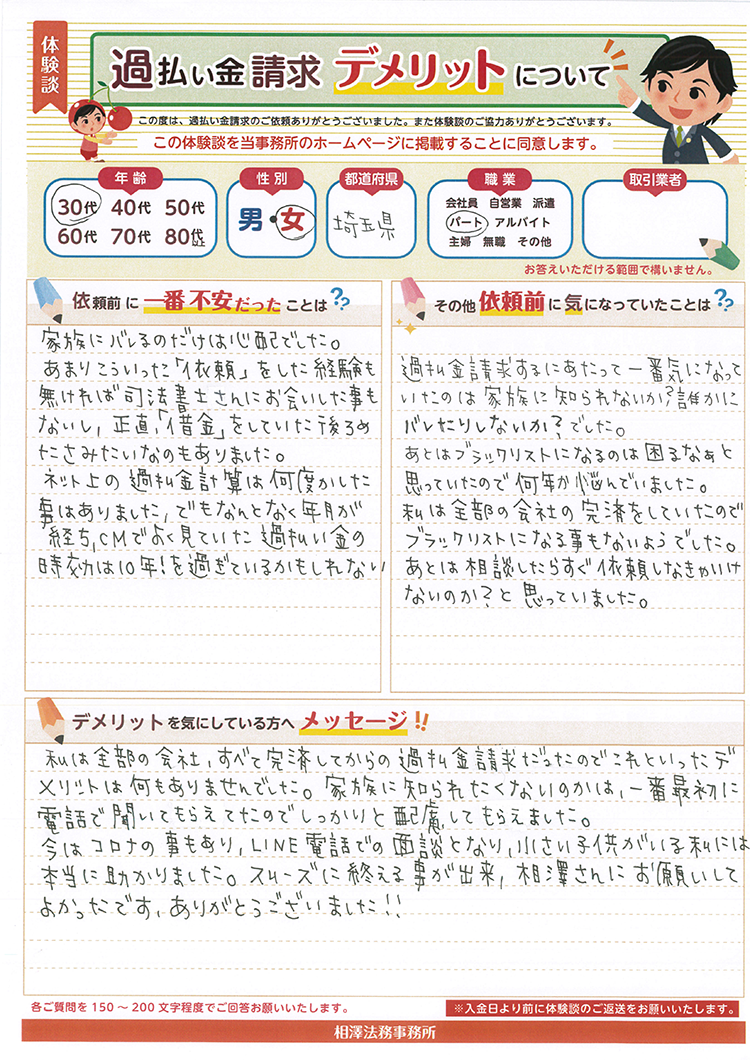 体験談
過払い金請求 デメリットについて
この度は、過払い金請求のご依頼ありがとうございました。また体験談のご協力ありがとうございます。
この体験談を当事務所のホームページに掲載することに同意します。
年齢
30代 40代 50代
60代 70代 80代以上
性別
男・女
都道府県
埼玉県
職業
会社員 自営業 派遣
パート アルバイト
主婦 無職 その他
取引業者
お答えいただける範囲で構いません。
依頼前に一番不安だったことは??
家族にバレるのだけは心配でした。
あまりこういった「依頼」をした経験も
無ければ司法書士さんにお会いした事も
ないし、正直、「借金」をしていた後ろめ
たさみたいなのもありました。
ネット上の過払金計算は何度かした
事はありました、でもなんとなく年月が
経ち、CMでよく見ていた過払い金の
時効は10年!を過ぎているかもしれない
その他依頼前に気になっていたことは??
過払金請求するにあたって一番気になって
いたのは家族に知られないか?誰かに
バレたりしないか?でした。
あとはブラックリストになるのは困るなぁと
思っていたので何年か悩んでいました。
私は全部の会社の完済をしていたので
ブラックリストになる事もないようでした。
あとは相談したらすぐ依頼しなきゃいけ
ないのか?と思っていました。
デメリットを気にしている方へメッセージ!!
私は全部の会社、すべて完済してからの過払金請求だったのでこれといったデ
メリットは何もありませんでした。家族に知られたくないのかは、一番最初に
電話で聞いてもらえてたのでしっかりと配慮してもらえました。
今はコロナの事もあり、LINE電話での面談となり、小さい子供がいる私には
本当に助かりました。スムーズに終える事が出来、相澤さんにお願いして
よかったです、ありがとうございました!!
各ご質問を150〜200文字程度でご回答お願いいたします。
※入金日より前に体験談のご返送をお願いいたします。
相澤法務事務所